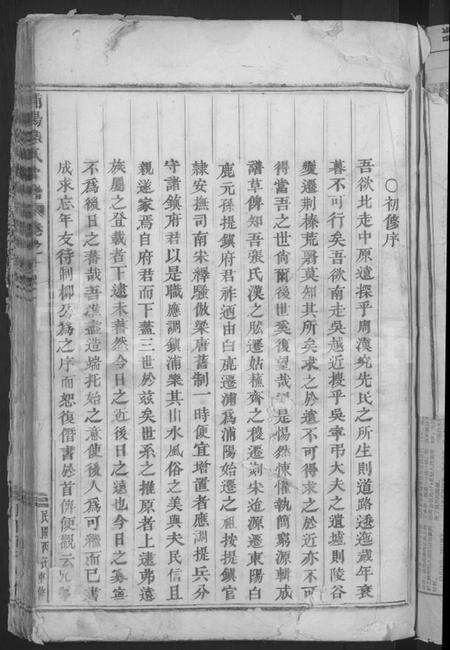 ○初修序
吾欲北走中原遠探乎周漢晚先氏之所生則道路遼逖歲年衰
暮不可行矣吾欲南走吳越近搜乎吳寧弔大夫之遺墟則陵谷
變遷荆榛荒翳莫知其所矣求之於遠不可得求之於近亦不可
得當吾之世尙爾後世奚復望哉 是惕然悚懼執簡窮源輯成
譜草俾知吾張氏漢之 遷姑蘇齊之後遷剡宋迨源遷東陽白
鹿元孫提鎮府君祚迺由白鹿遷浦為浦陽始遷之祖按提鎮官
隸安撫司南宋繹騷倣梁唐舊制一時便宜增置者應調提兵分
守諸鎮府君以是職應調鎮浦樂其山水風俗之美與夫民信且
親遂家焉自府君而下蓋三世於玆矣世系之推原者上遠弗遠
族屬之登載者下逮未蕃然今日之近後日之遠也今日之 寧
不為後日之蕃哉吾 造端托始之意使後人為可繼而已書
成求忘年友待制柳公為之序而恕復僭書於首俾便觀云
民國丙 重修